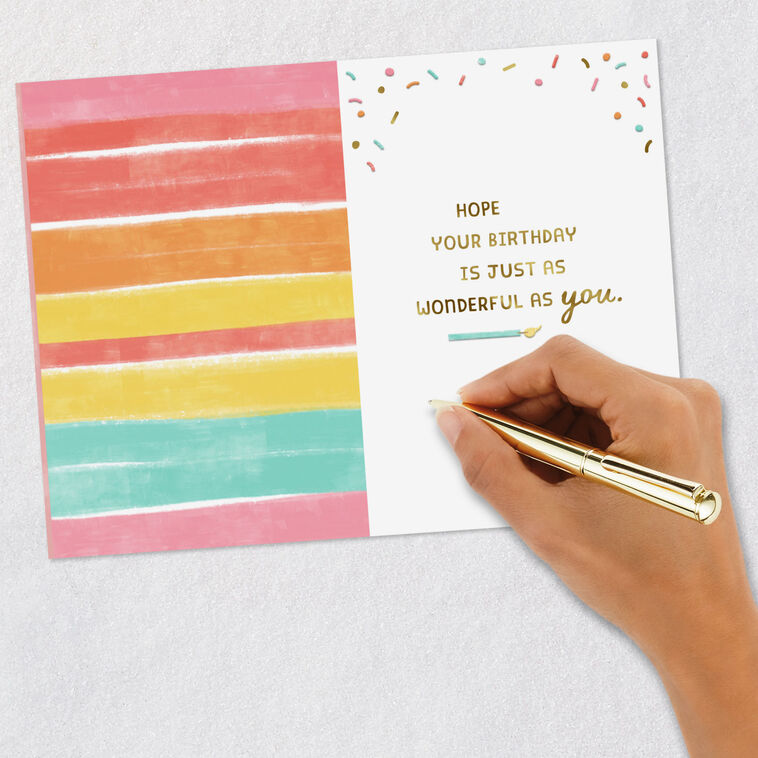 HOPE
YOUR BIRTHDAY
IS JUST AS
WONDERFUL AS you.